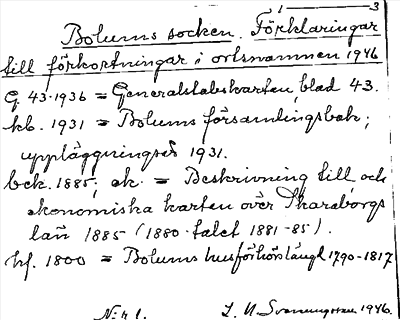 1 — 3
Bolums socken. Förklaringar
till förkortningar i ortsnamnen 1946
G. 43·1936 = Generalstabskartan, blad 43.
kb. 1931 = Bolums församlingsbok;
uppläggningsår 1931.
bek. 1885; ek. = Beskrivning till och
ekonomiska kartan över Skaraborgs
län 1885 (1880-talet 1881-85).
hf. 1800 = Bolums husförhörslängd 1790-1817
N:r 1. L. N. Svanungsson 1946.